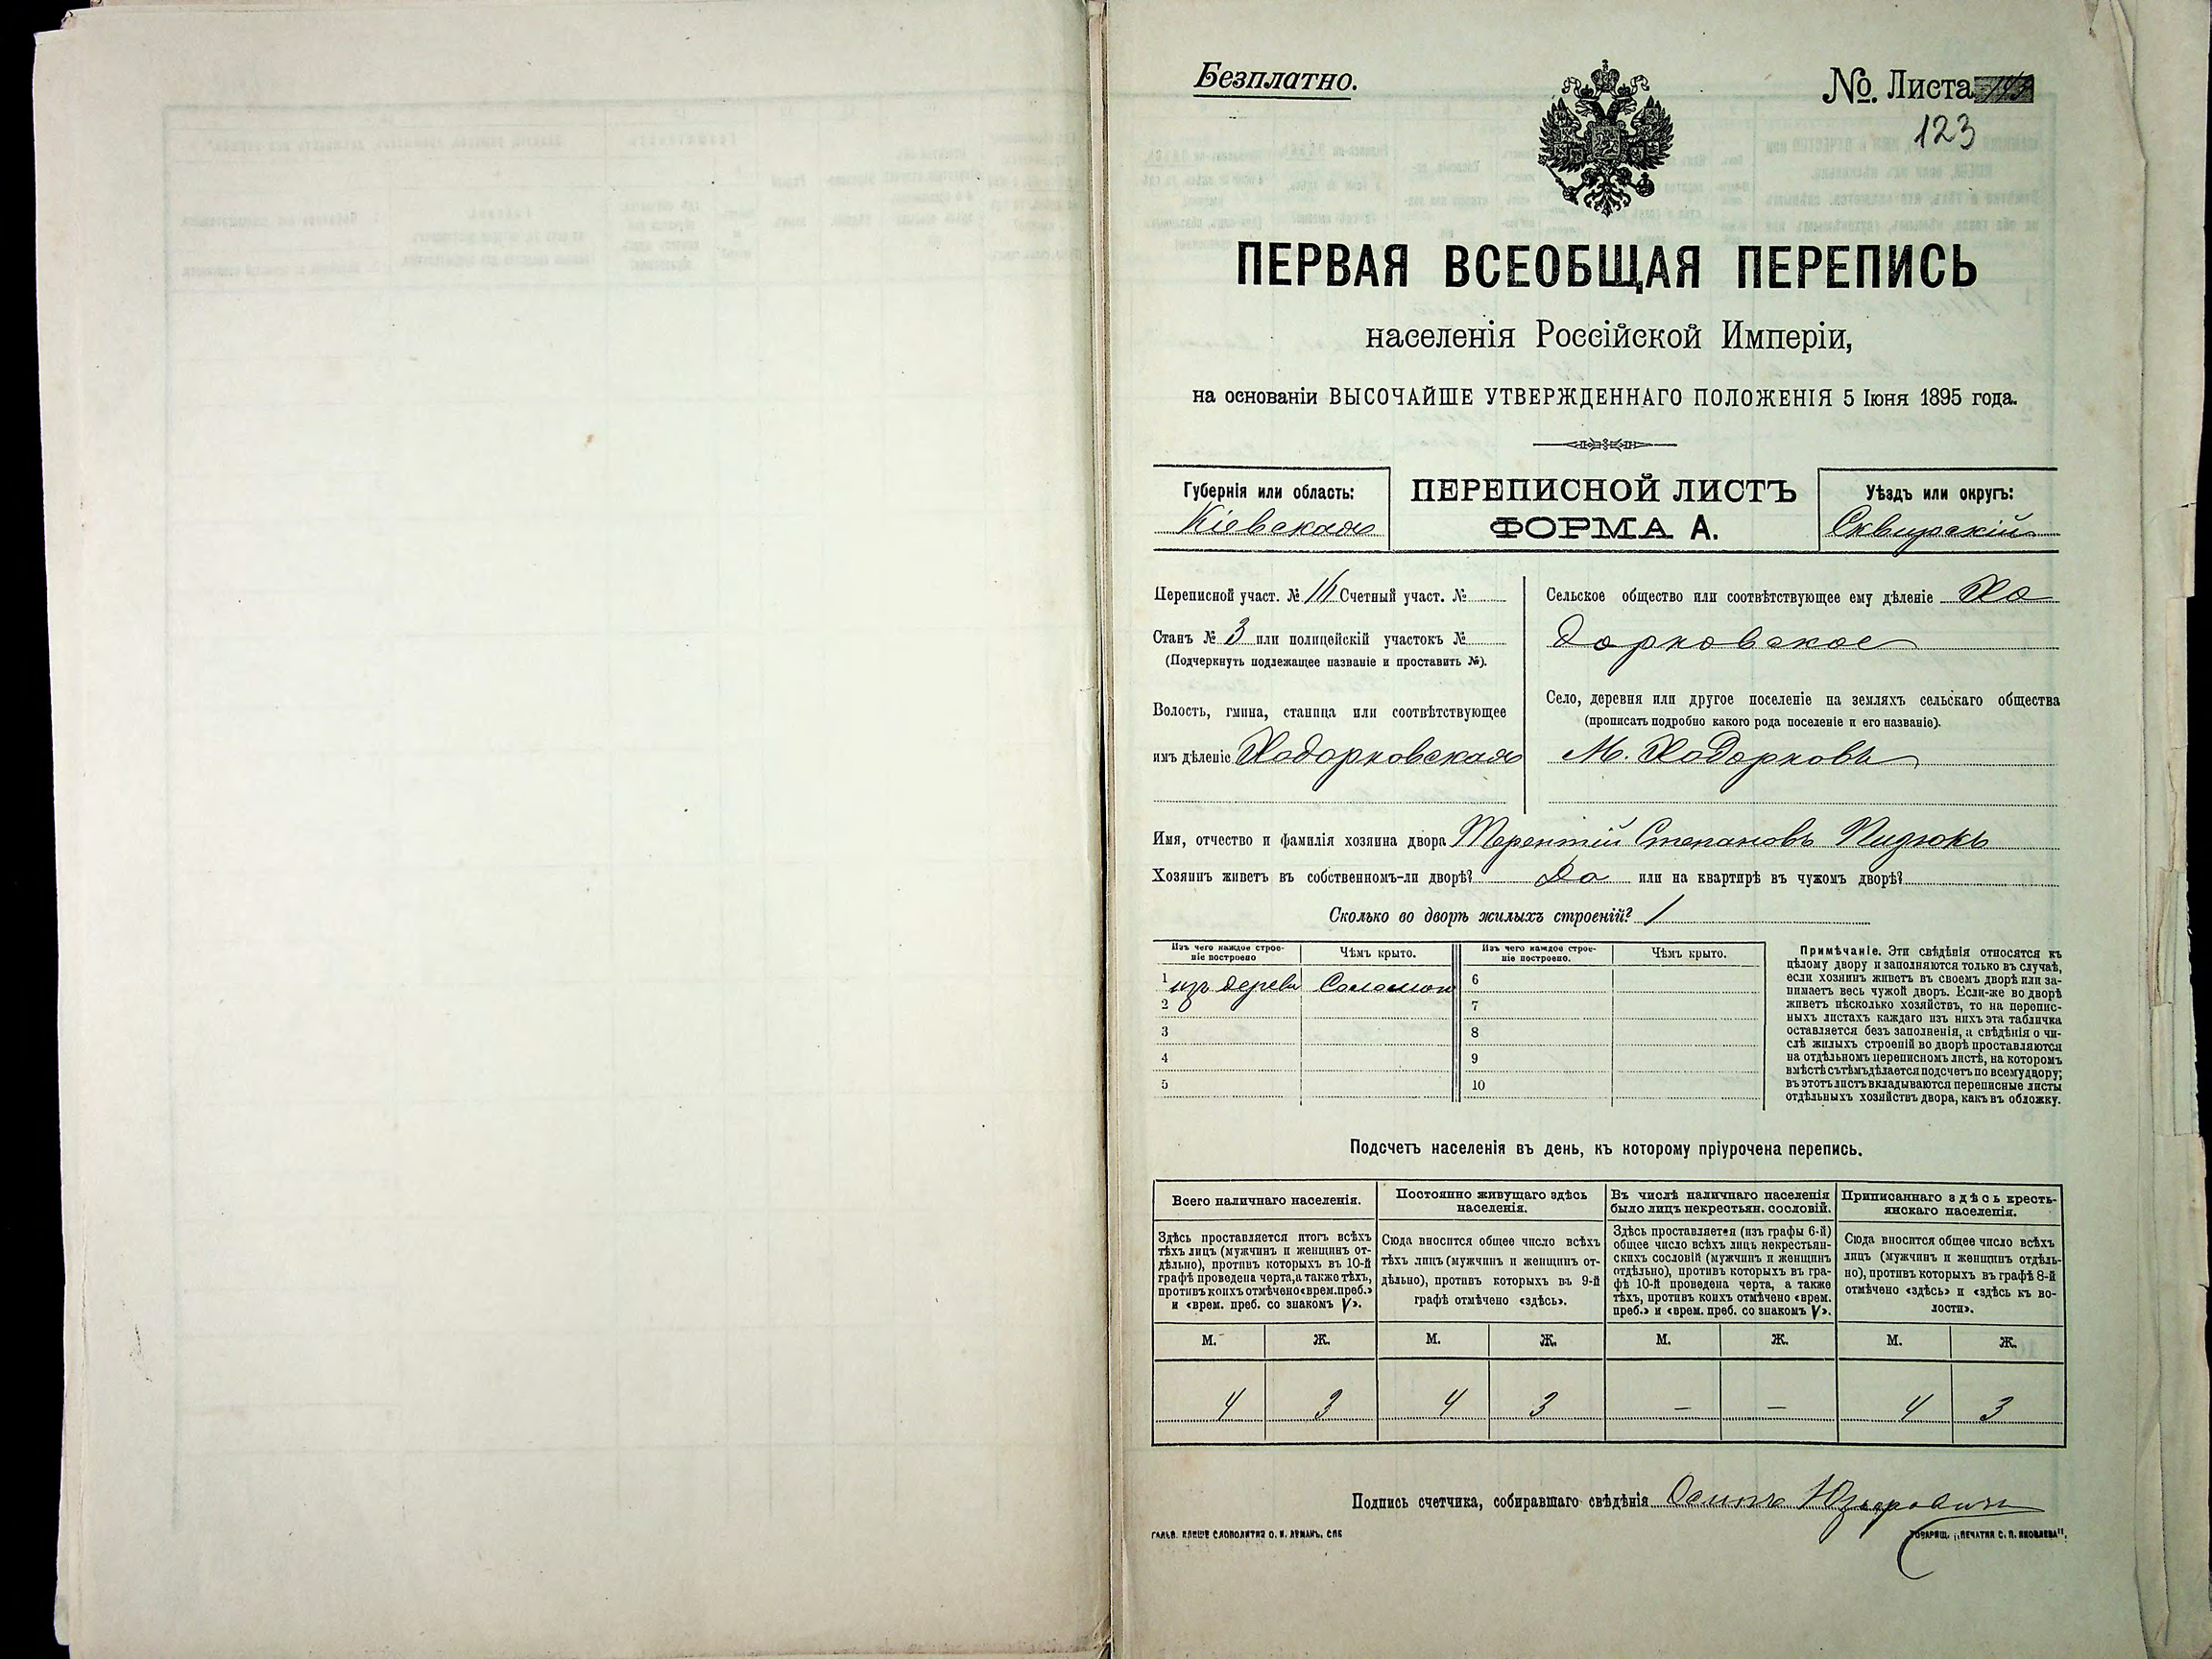 Безплатно.
№ Листа
123
ПЕРВАЯ ВСЕОБЩАЯ ПЕРЕПИСЬ
населенія Россійской Имперіи,
на основаніи ВЫСОЧАЙШЕ УТВЕРЖДЕННАГО ПОЛОЖЕНІЯ 5 Іюня 1895 года.
Губернія или область:
Кіевская
ПЕРЕПИСНОЙ ЛИСТЪ
ФОРМА А.
Уѣздъ или округъ:
Сквирскій
Переписной участ. № Счетный участ. №
Станъ № 3 или полицейскій участокъ №
(Подчеркнуть подлежащее названіе и проставить №).
Волость, гмина, станица или соотвѣтствующее
имъ дѣленіе Ходорковская
Сельское общество или соотвѣтствующее ему дѣленіе Хо
дорковское
Село, деревня или другое поселеніе на земляхъ сельскаго общества
(прописать подробно какого рода поселеніе и его названіе).
М. Ходорковъ
Имя, отчество и фамилія хозяина двора Терентій Степановъ Пидюкъ
Хозяинъ живетъ въ собственномъ-ли дворѣ? Да или на квартирѣ въ чужомъ дворѣ?
Сколько во дворѣ жилыхъ строеній? 1
Изъ чего каждое строе-
ніе построено
Чѣмъ крыто.
Изъ чего каждое строе-
ніе построено.
Чѣмъ крыто.
1 изъ дерева Соломой 6
2 7
3 8
4 9
5 10
Примѣчаніе. Эти свѣдѣнія относятся къ
цѣлому двору и заполняются только въ случаѣ,
если хозяинъ живетъ въ своемъ дворѣ или за-
нимаетъ весь чужой дворъ. Если-же во дворѣ
живетъ нѣсколько хозяйствъ, то на перепис-
ныхъ листахъ каждаго изъ нихъ эта табличка
оставляется безъ заполненія, а свѣдѣнія о чи-
слѣ жилыхъ строеній во дворѣ проставляются
на отдѣльномъ переписномъ листѣ, на которомъ
вмѣстѣ съ тѣмъ дѣлается подсчетъ по всему двору;
въ этотъ листъ вкладываются переписные листы
отдѣльныхъ хозяйствъ двора, какъ въ обложку.
Подсчетъ населенія въ день, къ которому пріурочена перепись.
Всего наличнаго населенія.
Здѣсь проставляется итогъ всѣхъ
тѣхъ лицъ (мужчинъ и женщинъ от-
дѣльно), противъ которыхъ въ 10-й
графѣ проведена черта, а также тѣхъ,
противъ коихъ отмѣчено «врем. преб.»
и «врем. преб. со знакомъ V».
Постоянно живущаго здѣсь
населенія.
Сюда вносится общее число всѣхъ
тѣхъ лицъ (мужчинъ и женщинъ от-
дѣльно), противъ которыхъ въ 9-й
графѣ отмѣчено «здѣсь».
Въ числѣ наличнаго населенія
было лицъ некрестьян. сословій.
Здѣсь проставляется (изъ графы 6-й)
общее число всѣхъ лицъ некрестьян-
скихъ сословій (мужчинъ и женщинъ
отдѣльно), противъ которыхъ въ гра-
фѣ 10-й проведена черта, а также
тѣхъ, противъ коихъ отмѣчено «врем.
преб.» и «врем. преб. со знакомъ V».
Приписаннаго здѣсь кресть-
янскаго населенія.
Сюда вносится общее число всѣхъ
лицъ (мужчинъ и женщинъ отдѣль-
но), противъ которыхъ въ графѣ 8-й
отмѣчено «здѣсь» и «здѣсь къ во-
лости».
М. Ж. М. Ж. М. Ж. М. Ж.
4 3 4 3 — — 4 3
Подпись счетчика, собиравшаго свѣдѣнія Осипъ
ГАЛЬВ. КЛИШЕ СЛОВОЛИТНЯ О. И. ЛЕМАНЪ, СПБ
ТОВАРИЩ. „ПЕЧАТНЯ С. П. ЯКОВЛЕВА".